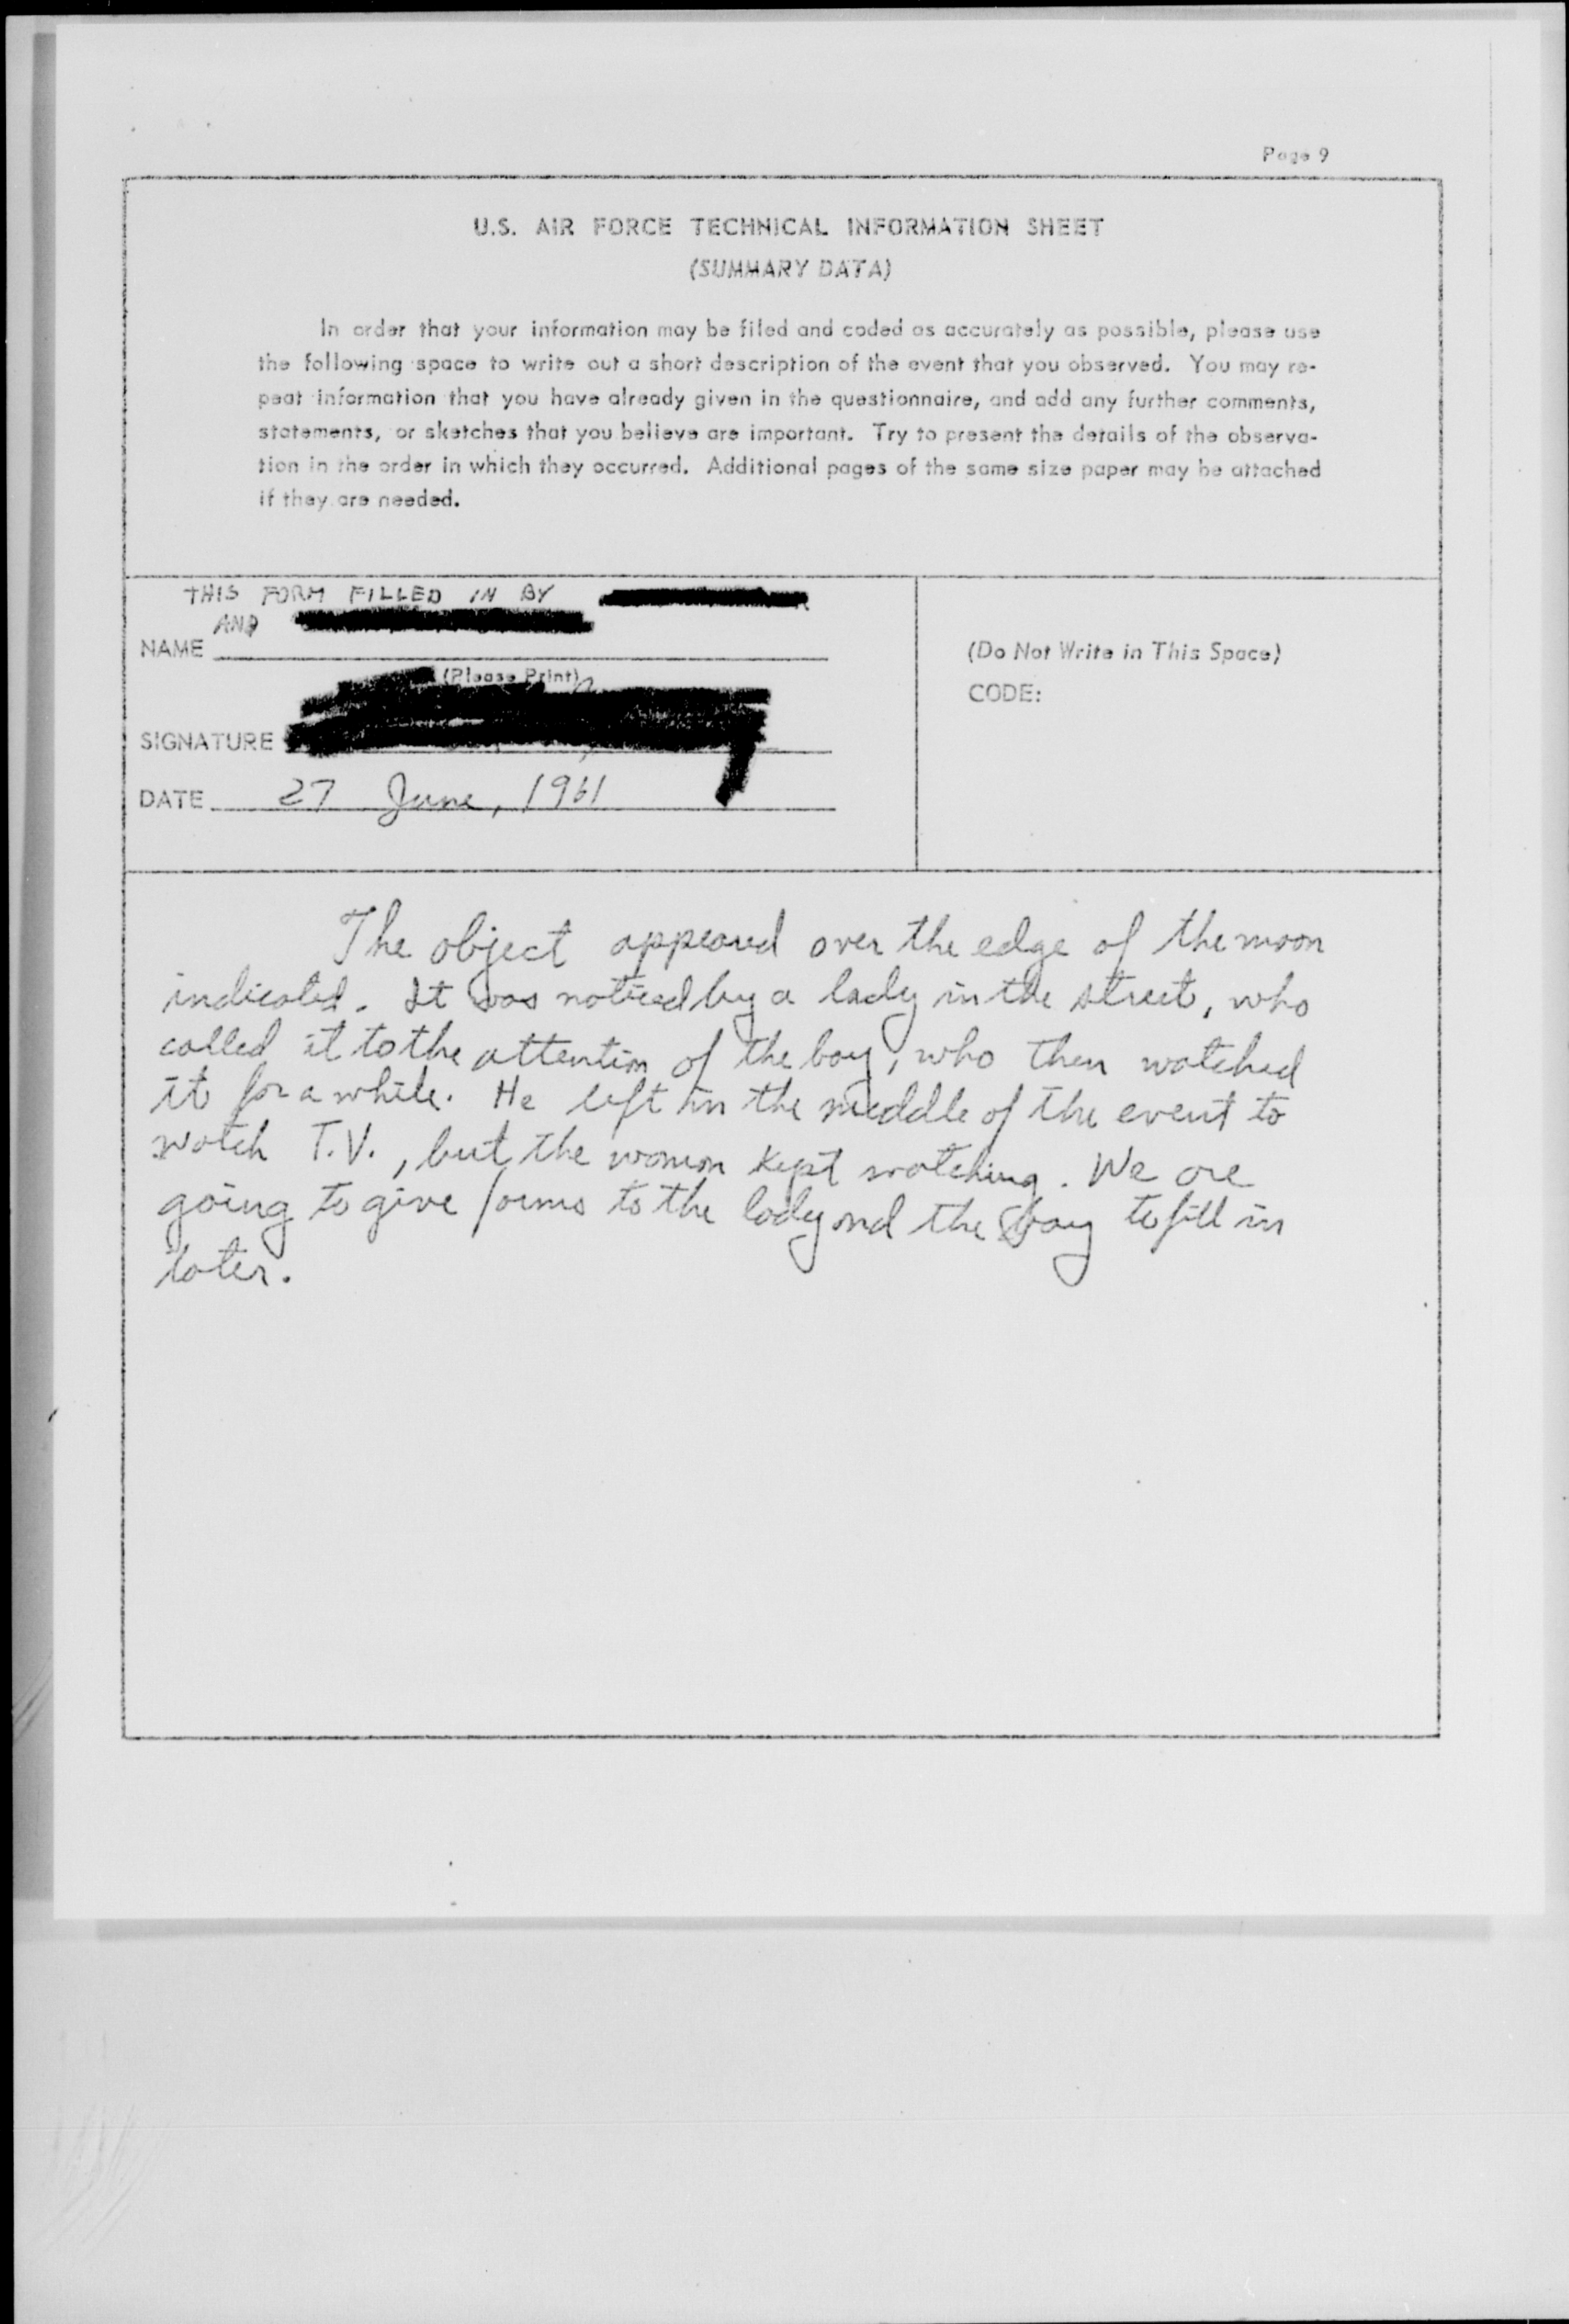 Page 9
U.S. AIR FORCE TECHNICAL INFORMATION SHEET
(SUMMARY DATA)
In order that your information may be filed and coded as accurately as possible, please use
the following space to write out a short description of the event that you observed. You may re-
peat information that you have already given in the questionnaire, and add any further comments,
statements, or sketches that you believe are important. Try to present the details of the observa-
tion in the order in which they occurred. Additional pages of the same size paper may be attached
if they are needed.
THIS FORM FILLED IN BY
AND
NAME
(Please Print)
SIGNATURE
DATE 27 June, 1961
(Do Not Write in This Space)
CODE:
The object appeared over the edge of the moon
indicated. It was noticed by a lady in the street, who
called it to the attention of the boy, who then watched
it for a while. He left in the middle of the event to
watch T.V., but the woman kept watching. We are
going to give forms to the lady and the boy to fill in
later.